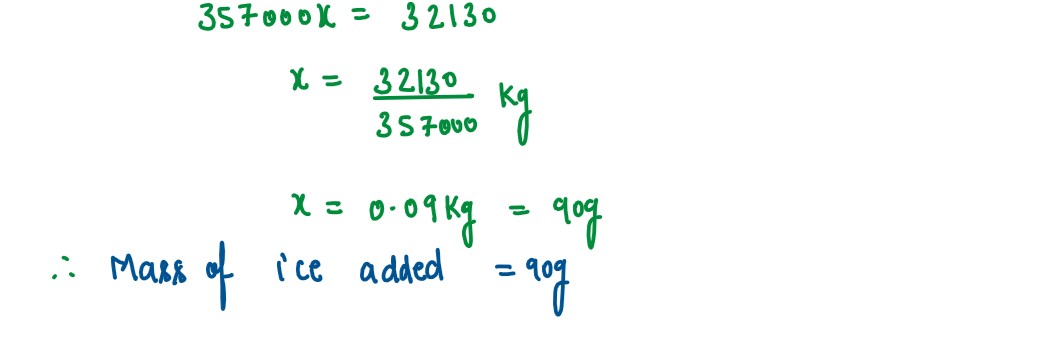 357000x = 32130
x = 32130/357000 Kg
x = 0.09Kg = 90g
∴ Mass of ice added = 90g